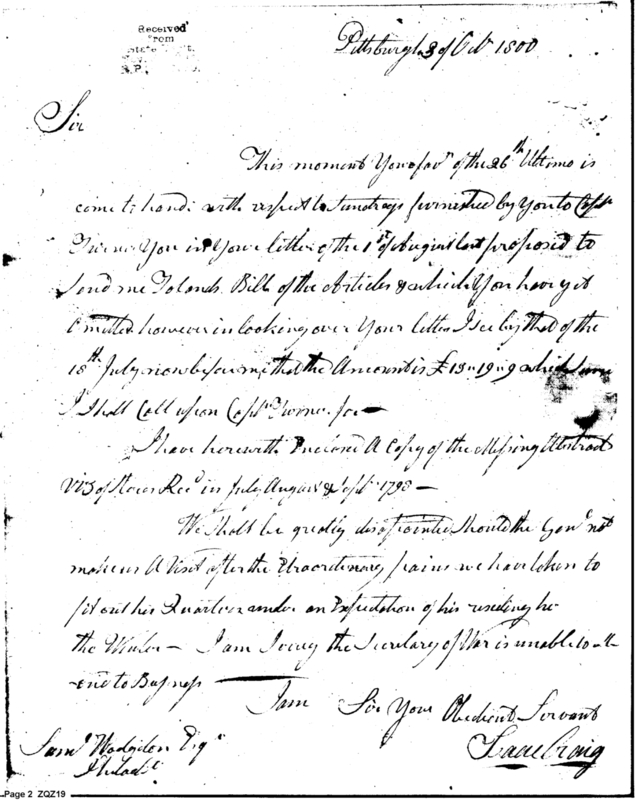 Received
from
State
Pittsburgh 3d of Octr 1800
Sir
This moment Your favr of the 26th Ultimo is
come to hand: with respect to Sundrys furnished by You to Captn
Turner You in Your letter of the 1st of August last proposed to
send me Bill of the Articles & which You have yet
Omitted however in looking over Your letters I see by that of the
18th July now before me that the Amount is £13 19 9 which sum
I Shall Call upon Captn Turner for —
I have herewith Enclosed A Copy of the Missing Abstract
Viz of Stores Recd in July August & Septr 1798 —
We Shall be greatly disappointed Should the Genl not
make us A Visit after the Extraordinary pains we have taken to
fit out his Quarters under an Expectation of his residing here
the Winter — I am Sorry the Secretary of War is unable to att-
-end to Business
I am Sir Your Obedient Servant
Isaac Craig
Saml Hodgdon Esqr
Philada
Page 2 ZQZ19